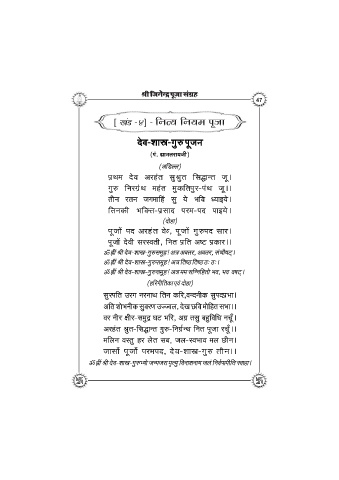 श्री जिनेन्द्र पूजा संग्रह
47
[ खंड -४] - नित्य नियम पूजा
देव-शास्त्र-गुरु पूजन
(पं. द्यानतरायजी)
(अडिल्ल)
प्रथम देव अरहंत सुश्रुत सिद्धान्त जू।
गुरु निरग्रंथ महंत मुकतिपुर-पंथ जू।।
तीन रतन जगमाहिं सु ये भवि ध्याइये।
तिनकी भक्ति-प्रसाद परम-पद पाइये।
(दोहा)
पूजों पद अरहंत के, पूजों गुरुपद सार।
पूजों देवी सरस्वती, नित प्रति अष्ट प्रकार।।
ॐ ह्रीं श्री देव-शास्त्र-गुरुसमूह! अत्र अवतर, अवतर, संवौषट्।
ॐ ह्रीं श्री देव-शास्त्र-गुरुसमूह! अत्र तिष्ठ तिष्ठ ठः ठः।
ॐ ह्रीं श्री देव-शास्त्र-गुरुसमूह! अत्र मम सन्निहितो भव, भव वषट्।
(हरिगीतिका एवं दोहा)
सुरपति उरग नरनाथ तिन करि, वन्दनीक सुपदप्रभा।
अति शोभनीक सुवरण उज्जल, देख छवि मोहित सभा।।
वर नीर क्षीर-समुद्र घट भरि, अग्र तसु बहुविधि नचूँ।
अरहंत श्रुत-सिद्धान्त गुरु-निर्ग्रन्थ नित पूजा रचूँ।।
मलिन वस्तु हर लेत सब, जल-स्वभाव मल छीन।
जासों पूजों परमपद, देव-शास्त्र-गुरु तीन।।
ॐ ह्रीं श्री देव-शास्त्र-गुरुभ्यो जन्मजरामृत्यु विनाशनाय जलं निर्वपामीति स्वाहा।